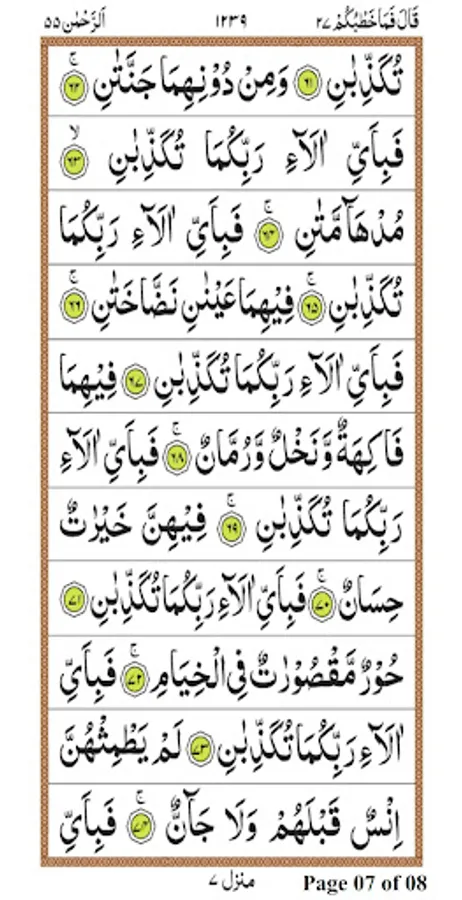 قَالَ فَمَا خَطْبُكُمْ ٢٧ ١٢٣٩ اَلرَّحْمٰن ٥٥
تُكَذِّبٰنِ ۟ۚ ﴿٦١﴾ وَمِنْ دُوْنِهِمَا جَنَّتٰنِ ۚ ﴿٦٢﴾
فَبِاَيِّ اٰلَآءِ رَبِّكُمَا تُكَذِّبٰنِ ۙ ﴿٦٣﴾
مُدْهَآمَّتٰنِ ۚ ﴿٦٤﴾ فَبِاَيِّ اٰلَآءِ رَبِّكُمَا
تُكَذِّبٰنِ ۚ ﴿٦٥﴾ فِيْهِمَا عَيْنٰنِ نَضَّاخَتٰنِ ۚ ﴿٦٦﴾
فَبِاَيِّ اٰلَآءِ رَبِّكُمَا تُكَذِّبٰنِ ﴿٦٧﴾ فِيْهِمَا
فَاكِهَةٌ وَّنَخْلٌ وَّرُمَّانٌ ۚ ﴿٦٨﴾ فَبِاَيِّ اٰلَآءِ
رَبِّكُمَا تُكَذِّبٰنِ ۚ ﴿٦٩﴾ فِيْهِنَّ خَيْرٰتٌ
حِسَانٌ ۚ ﴿٧٠﴾ فَبِاَيِّ اٰلَآءِ رَبِّكُمَا تُكَذِّبٰنِ ﴿٧١﴾
حُوْرٌ مَّقْصُوْرٰتٌ فِي الْخِيَامِ ۚ ﴿٧٢﴾ فَبِاَيِّ
اٰلَآءِ رَبِّكُمَا تُكَذِّبٰنِ ﴿٧٣﴾ لَمْ يَطْمِثْهُنَّ
اِنْسٌ قَبْلَهُمْ وَلَا جَآنٌّ ۚ ﴿٧٤﴾ فَبِاَيِّ
منزل ٧ Page 07 of 08